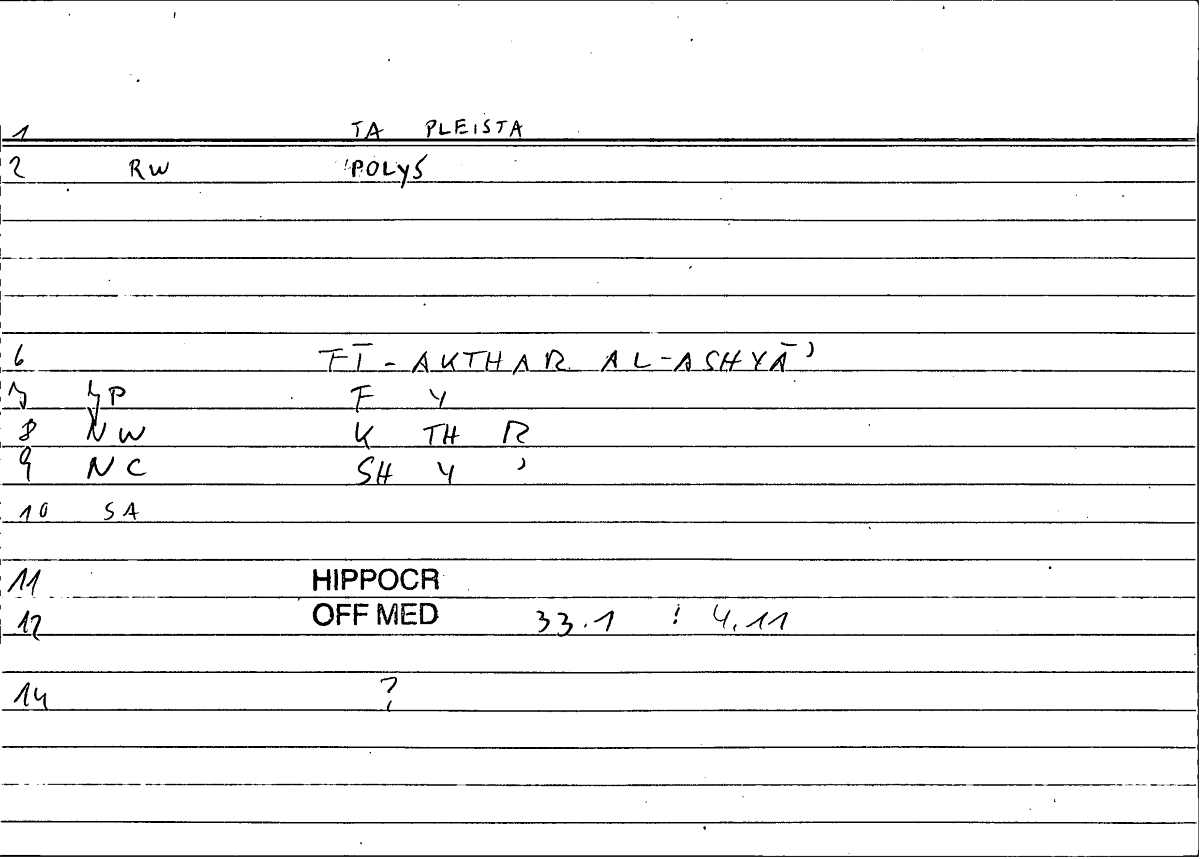 1 TA PLEISTA
2 RW POLYS
6 FĪ-AKTHAR AL-ASHYĀ'
7 YP F Y
8 NW K TH R
9 NC SH Y '
10 SA
11 HIPPOCR
12 OFF MED 33.1 : 4.11
14 ?